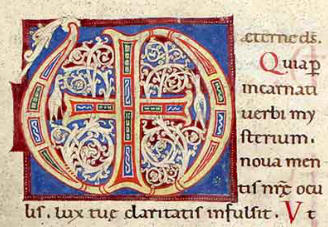 æterne ds.
Quia p
incarnati
uerbi my
sterium.
noua men
tis nrę ocu
lis. lux tuę claritatis infulsit. Vt